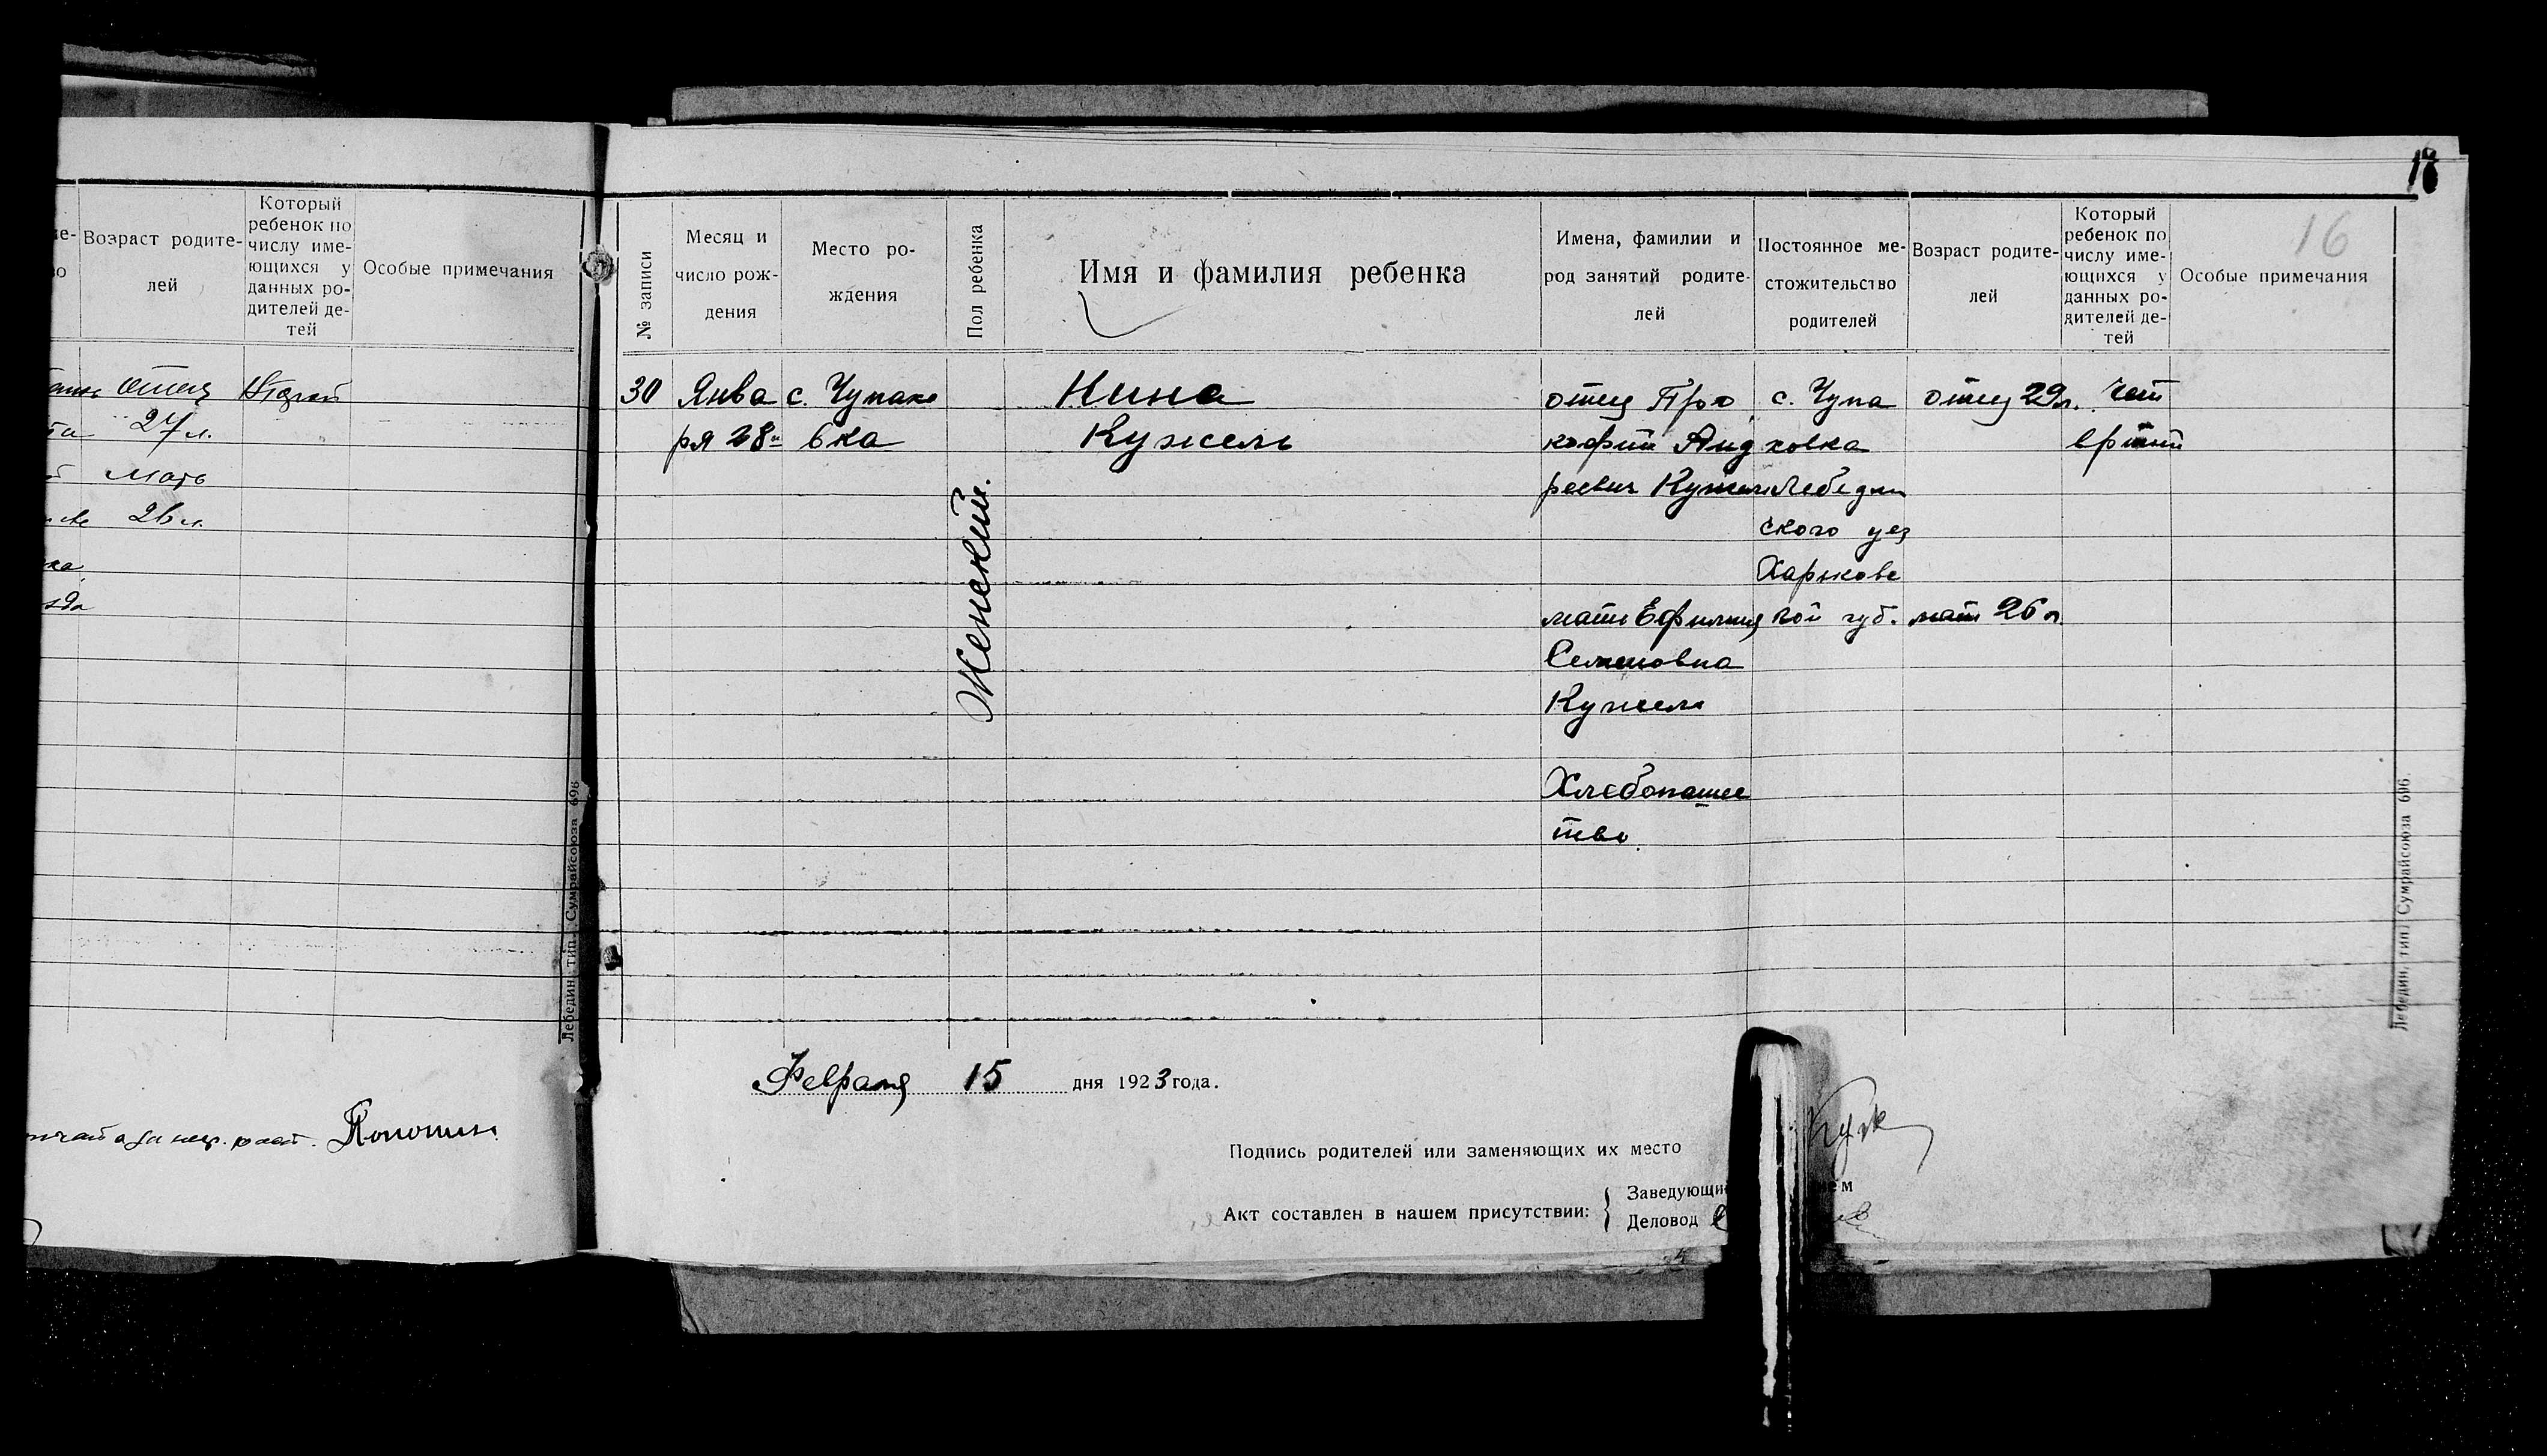 Возраст родите-
лей
Который
ребенок по
числу име-
ющихся у
данных ро-
дителей де-
тей
Особые примечания
отец
27 л.
мать
26 л.
Лебедин. тип. Сумрайсоюза 696
18
16
№ записи
Месяц и
число рож-
дения
Место ро-
ждения
Пол ребенка
Имя и фамилия ребенка
Имена, фамилии и
род занятий родите-
лей
Постоянное ме-
стожительство
родителей
Возраст родите-
лей
Который
ребенок по
числу име-
ющихся у
данных ро-
дителей де-
тей
Особые примечания
30
Янва
ря 28
с. Чупахо
вка
Женский.
Нина
Кужель
отец Про
кофий Анд
реевич Кужель
мать Ефимия
Семеновна
Кужель
Хлебопашес
тво
с. Чупа
ховка
Лебедин
ского уез
Харьковс
кой губ.
отец 29 л.
мать 26 л.
чет
вртый
Февраля 15 дня 1923 года.
Подпись родителей или заменяющих их место
Акт составлен в нашем присутствии:
Деловод
Лебедин. тип. Сумрайсоюза 696.